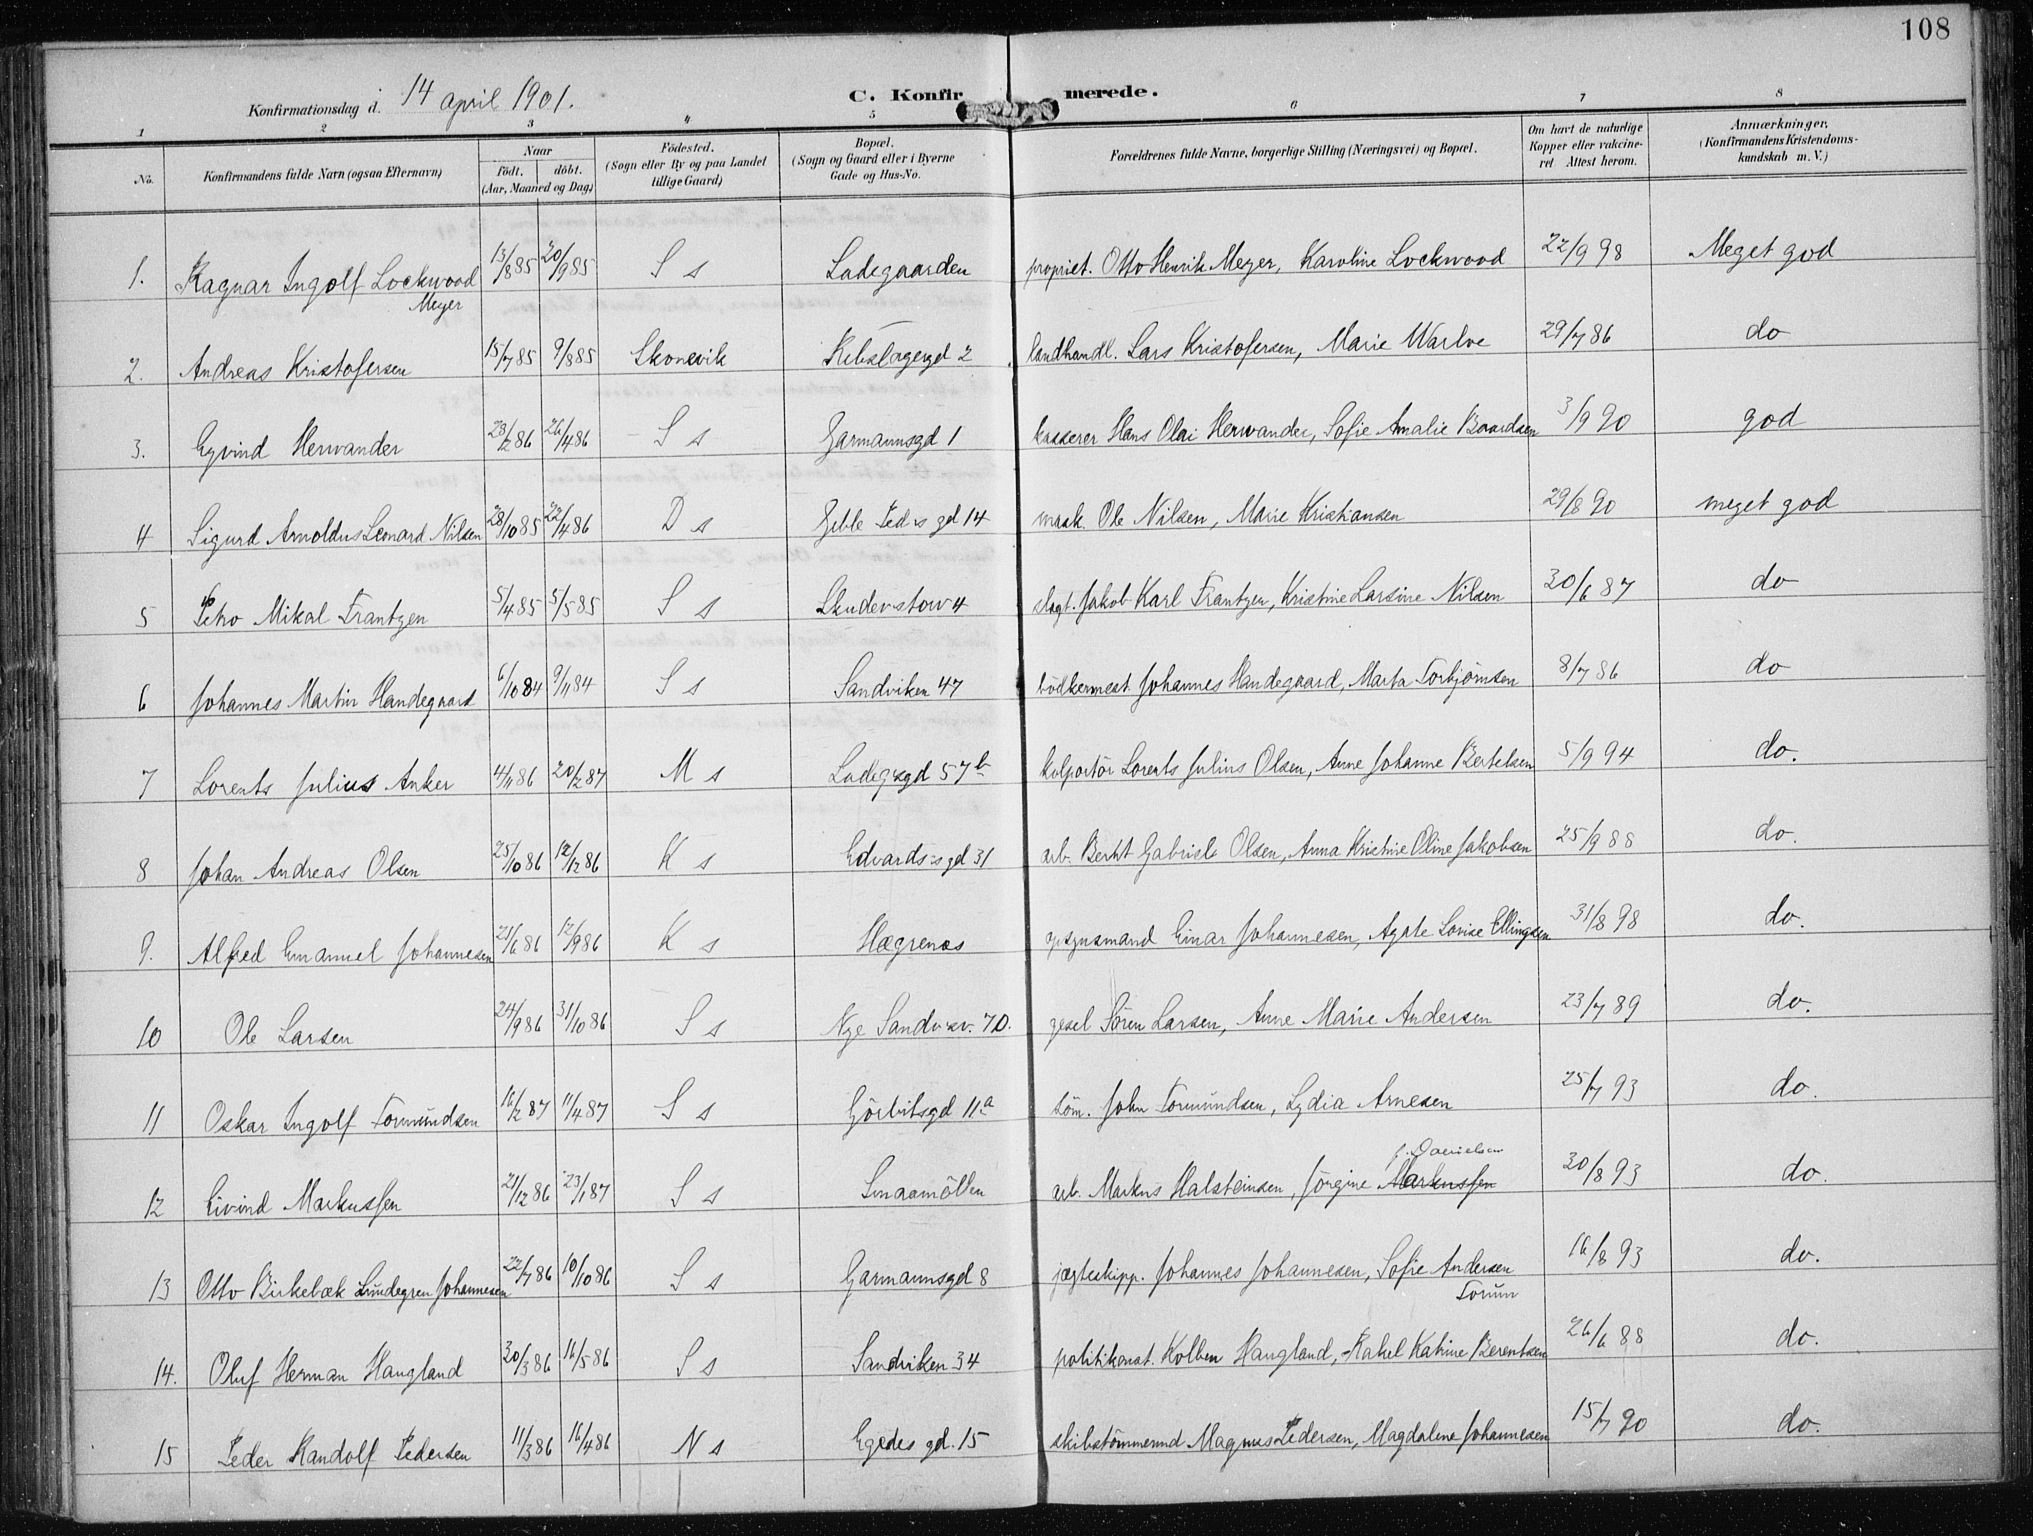 108
Konfirmationsdag d. 14 april 1901.
C. Konfirmerede.
1 2 3 4 5 6 7 8
No. Konfirmandens fulde Navn (ogsaa Efternavn) Naar født. døbt. (Aar, Maaned og Dag) Fødested. (Sogn eller By og paa Landet tillige Gaard) Bopæl. (Sogn og Gaard eller i Byerne Gade og Hus-No. Forældrenes fulde Navne, borgerlige Stilling (Næringsvei) og Bopæl. Om havt de naturlige Kopper eller vakcineret Attest herom. Anmærkninger. (Konfirmandens Kristendomskundskab m. V.)
1. Ragnar Ingolf Lockwood Meyer 13/8 85 20/9 85 S s Ladegaarden propriet. Otto Henrik Meyer, Karoline Lockwood 22/9 98 Meget god
2. Andreas Kristofersen 15/7 85 9/8 85 Skonevik Rebslagergd 2 landhandl. Lars Kristofersen, Marie Warloe 29/7 86 do
3. Eyvind Herwander 28/2 86 26/4 86 S s Garmannsgd 1 kasserer Hans Olai Herwander, Sofie Amalie Baardsen 3/9 90 god
4 Sigurd Arnoldus Leonard Nilsen 28/10 85 22/4 86 D s Geble Peds gd 14 mask. Ole Nilsen, Marie Kristiansen 29/8 90 meget god
5 Petro Mikal Frantzen 5/4 85 5/5 85 S s Skuderstow 4 slagt. Jakob Karl Frantzen, Kristine Larsine Nilsen 30/6 87 do
6 Johannes Martin Handegaard 6/10 84 9/11 84 S s Sandviken 47 bödkermest. Johannes Handegaard, Marta Torbjörnsen 8/7 86 do
7 Lorents Julius Anker 4/11 86 20/2 87 M s Ladegsgd 57 b kolportör Lorents Julius Olsen, Anne Johanne Bertelsen 5/9 94 do.
8 Johan Andreas Olsen 25/10 86 12/12 86 K s Edvards gd 31 arb. Berht Gabriel Olsen, Anna Kristine Oline Jakobsen 25/9 88 do.
9. Alfred Emanuel Johannesen 21/6 86 12/9 86 K s Hægrenæs opsynsmand Einar Johannesen, Agate Lovise Ellingsen 31/8 98 do.
10 Ole Larsen 24/9 86 31/10 86 S s Nye Sandvsv. 70. gesel Sören Larsen, Anne Marie Andersen 23/7 89 do.
11 Oskar Ingolf Tormundsen 16/2 87 11/4 87 S s Görbitsgd 11 a söm. John Tormundsen, Lydia Arnesen 25/7 93 do.
12 Eivind Markussen 21/12 86 23/1 87 S s Smaamöllen arb. Markus Halsteinsen, Jörgine Markussen f. Danielsen 30/8 93 do.
13 Otto Birkebæk Lundegren Johannesen 22/7 86 10/10 86 S s Garmannsgd 8 jægteskipp. Johannes Johannesen, Sofie Andersen Torum 16/8 93 do.
14. Oluf Herman Haugland 30/3 86 16/5 86 S s Sandviken 34 politikonst. Kolben Haugland, Rakel Katrine Berentsen 26/6 88 do.
15 Peder Randolf Pedersen 11/3 86 16/4 86 N s Egedes gd. 15 skibstömmermd Magnus Pedersen, Magdalene Johannesen 15/7 90 do.